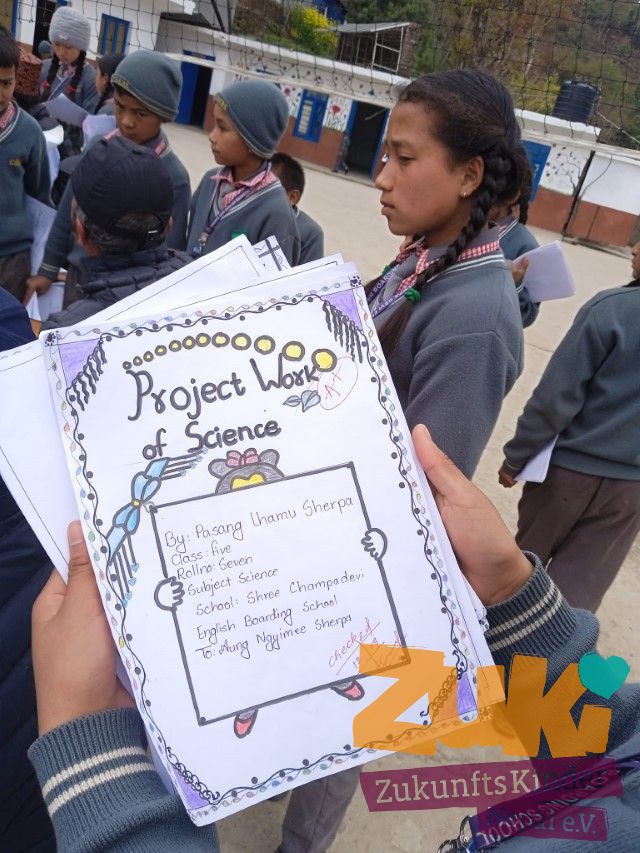 Project Work
A+
of Science
By: Pasang Lhamu Sherpa
Class: five
Rollno: Seven
Subject Science
School: Shree Champadevi
English Boarding School
To: Aung Ngyimee Sherpa
checked
ZuKi
ZukunftsKinder
Nepal e.V.
SCHOOL